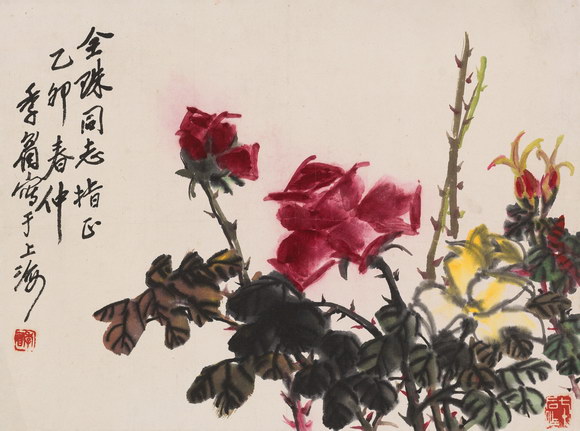 全珠同志指正
乙卯春仲
季寫于上海